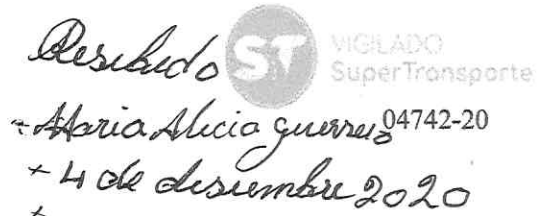 Resibido
ST VIGILADO
SuperTransporte
- Maria Alicia guerrero 04742-20
+ 4 de desiembre 2020
+